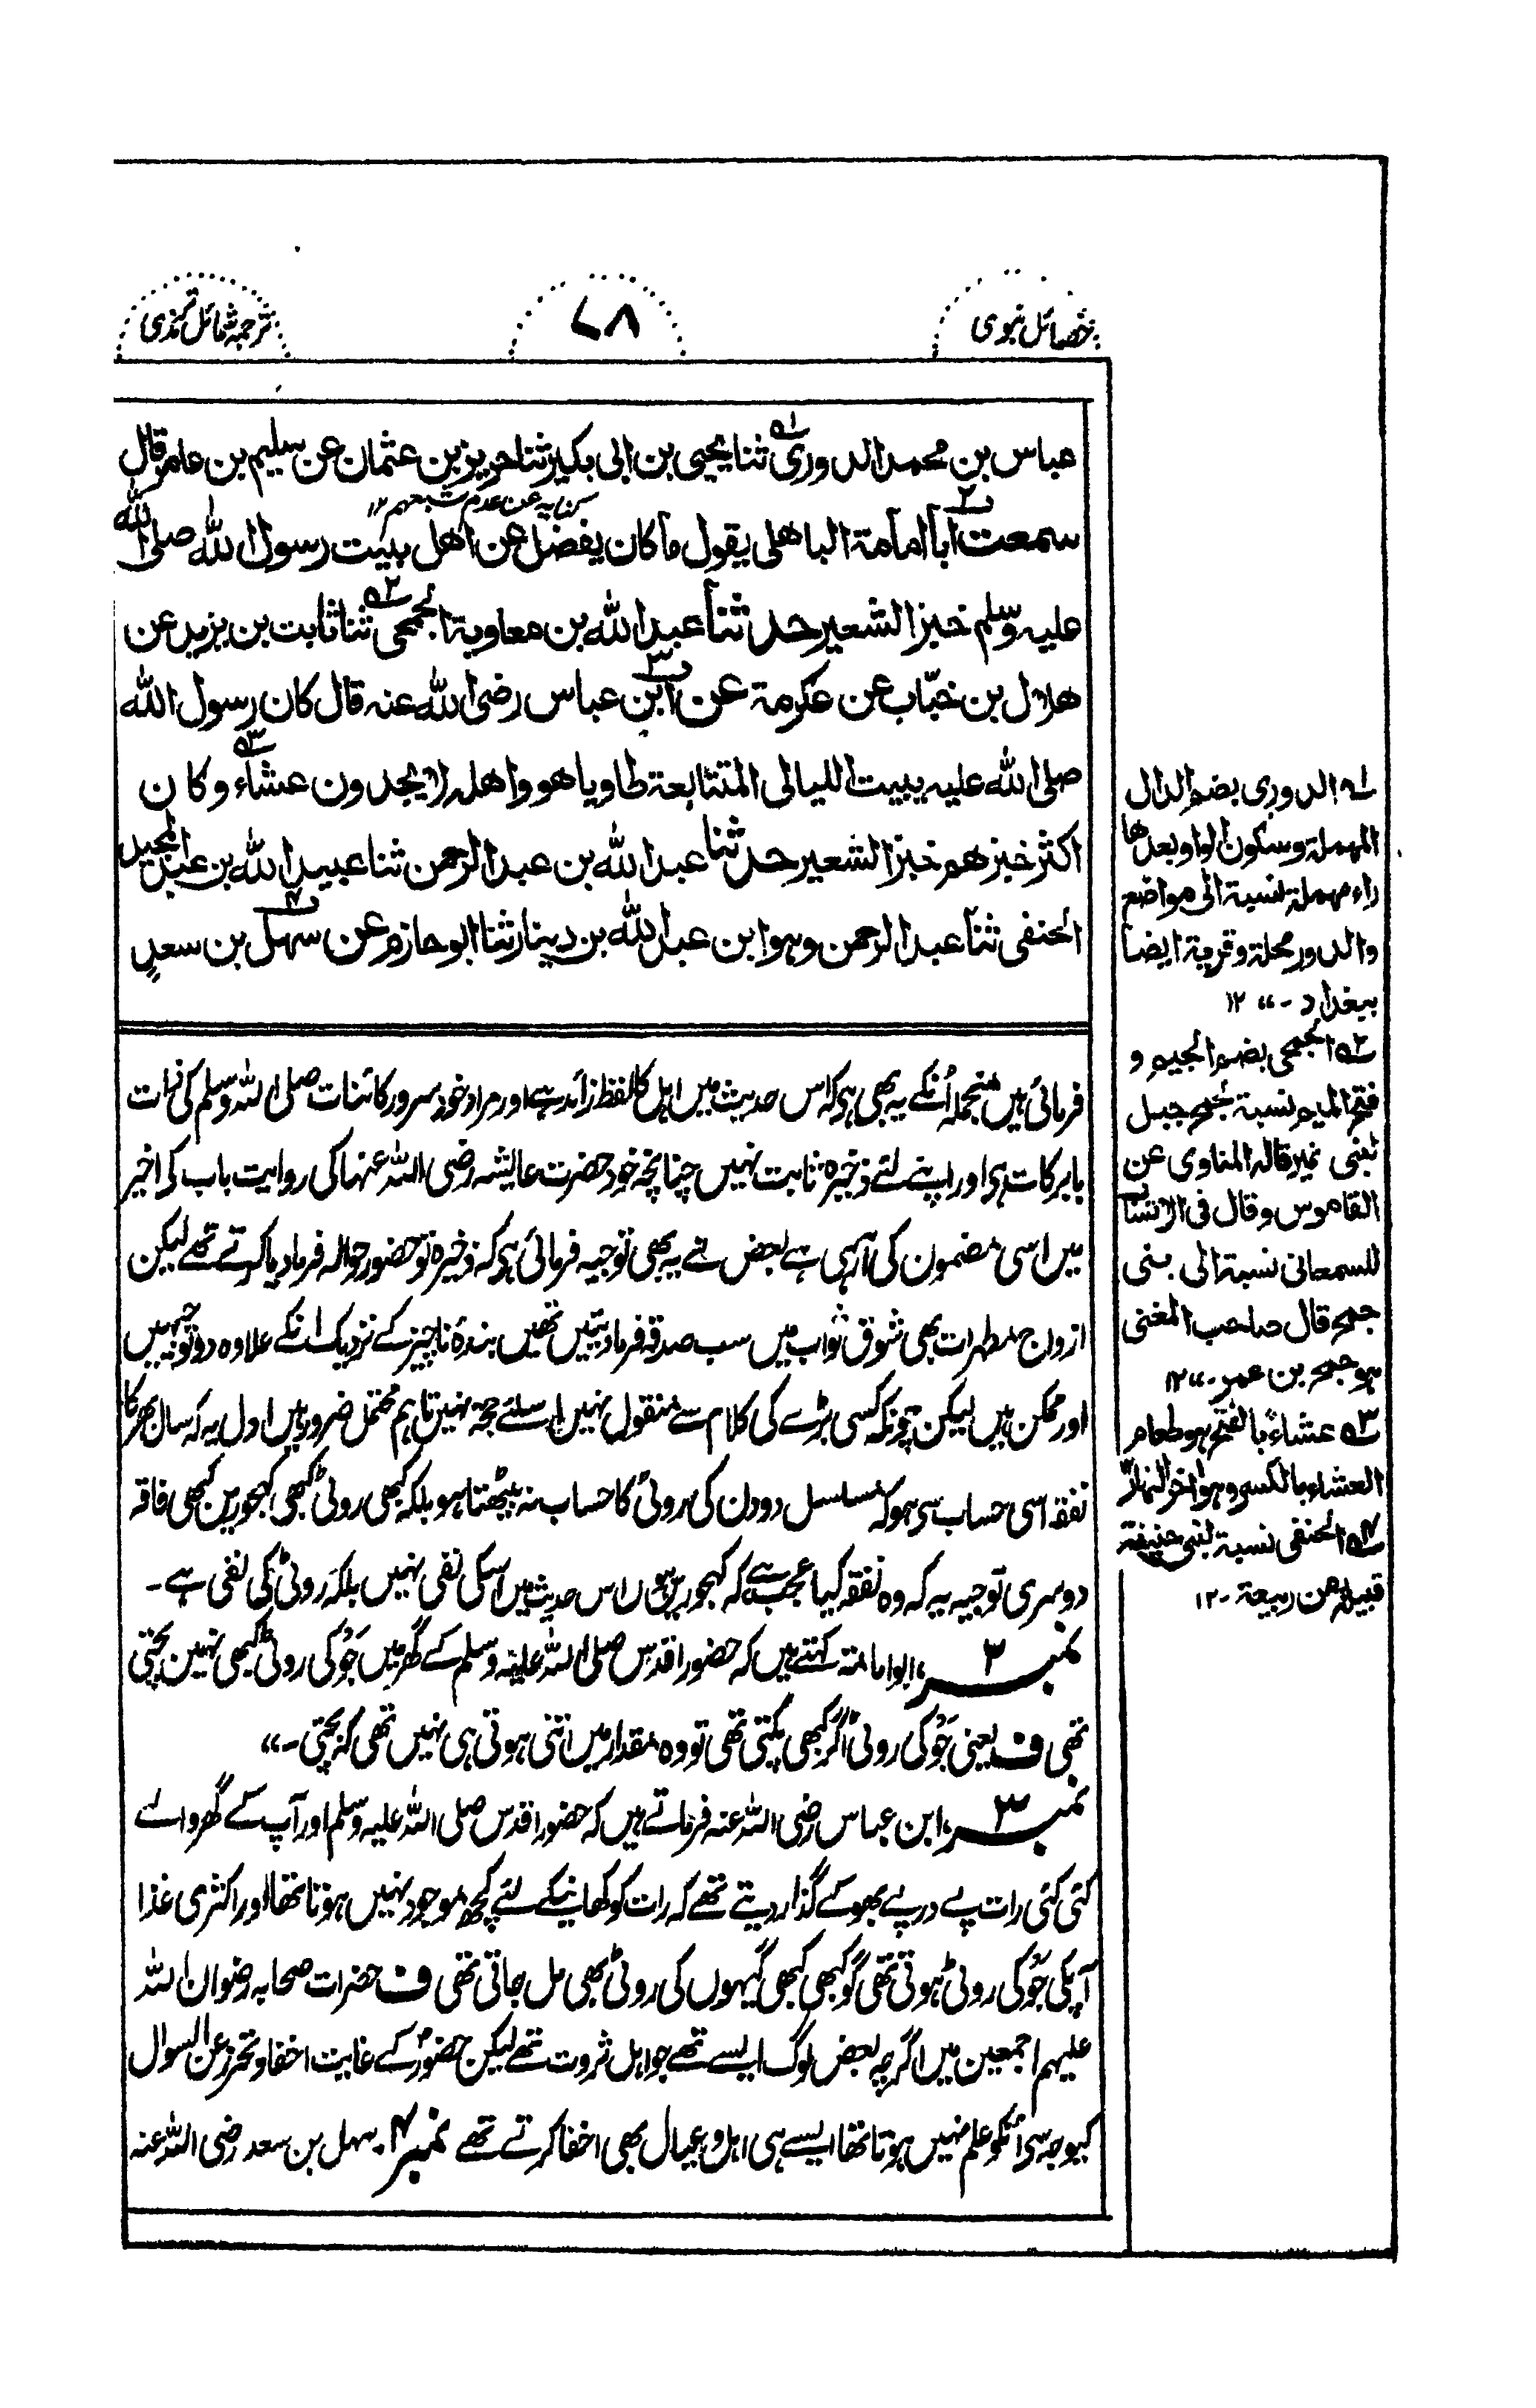 خصائل نبوی
۷۸
ترجمہ شمائل ترمذی
عباس بن محمد الدوری ثنا یحیی بن ابی بکیر ثنا حریز بن عثمان عن سلیم بن عامر قال
کنایہ عن عدم شبعہم ۱۲
سمعت ابا امامة الباهلی یقول ما کان یفضل عن اهل بیت رسول الله صلی الله
علیہ وسلم خبز الشعیر حدثنا عبد الله بن معاویة الجمحی ثنا ثابت بن یزید عن
هلال بن خبّاب عن عکرمة عن ابن عباس رضی الله عنہ قال کان رسول الله
صلی الله علیہ یبیت اللیالی المتتابعة طاویا هو واهلہ لا یجدون عشاء وکان
اکثر خبزهم خبز الشعیر حدثنا عبد الله بن عبد الرحمن ثنا عبید الله بن عبد المجید
الحنفی ثنا عبد الرحمن وہو ابن عبد الله بن دینار ثنا ابو حازم عن سهل بن سعد
فرمائی ہیں منجملہ اُنکے یہ بھی ہی کہ اس حدیث میں اہل کا لفظ زائد ہے اور مراد خود سرور کائنات صلی اللہ وسلم کی ذات
بابرکات ہی اور اپنے لئے ذخیرہ ثابت نہیں چنانچہ خود حضرت عایشہ رضی اللہ عنہا کی روایت باب کی اخیر
میں اسی مضمون کی آرہی ہے بعض نے یہ بھی توجیہ فرمائی ہی کہ ذخیرہ تو حضور حوالہ فرما دیا کرتے تھے لیکن
ازواج مطہرات بھی شوق ثواب میں سب صدقہ فرما دیتیں تھیں بندۂ ناچیز کے نزدیک انکے علاوہ دو توجیہیں
اور ممکن ہیں لیکن چونکہ کسی بڑے کی کلام سے منقول نہیں اسلئے حجۃ نہیں تاہم محتمل ضرور ہیں اول یہ کہ سال بھر کا
نفقہ اسی حساب سی ہو کہ مسلسل دو دن کی روٹی کا حساب نہ بیٹھتا ہو بلکہ کبھی روٹی کبھی کھجوریں کبھی فاقہ
دوسری توجیہ یہ کہ وہ نفقہ کیا عجب ہے کہ کھجوریں ہوں اس حدیث میں اسکی نفی نہیں بلکہ روٹی کی نفی ہے۔
نمبر ۲ ابو امامتہ کہتے ہیں کہ حضور اقدس صلی اللہ علیہ وسلم کے گھر میں جَو کی روٹی کبھی نہیں بچتی
تھی ف یعنی جَو کی روٹی اگر کبھی پکتی تھی تو وہ مقدار میں اتنی ہوتی ہی نہیں تھی کہ بچتی۔،،
نمبر ۳ ابن عباس رضی اللہ عنہ فرماتے ہیں کہ حضور اقدس صلی اللہ علیہ وسلم اور آپ کے گھر والے
کئی کئی رات پے درپے بھوکے گذار دیتے تھے کہ رات کو کھانیکے لئے کچھ موجود نہیں ہوتا تھا اور اکثری غذا
آپکی جَو کی روٹی ہوتی تھی گو کبھی کبھی گیہوں کی روٹی بھی مل جاتی تھی ف حضرات صحابہ رضوان اللہ
علیہم اجمعین میں اگرچہ بعض لوگ ایسے تھے جو اہل ثروت تھے لیکن حضور کے غایت اخفا و تحرز عن السوال
کیوجہ سی اُنکو علم نہیں ہوتا تھا ایسے ہی اہل و عیال بھی اخفا کرتے تھے نمبر ۴ سہل بن سعد رضی اللہ عنہ
۱ الدوری بضم الدال
المهملة وسکون الواو بعدها
راء مهملة نسبة الی مواضع
والدور محلة وقریة ایضا
ببغداد۔،، ۱۲
۲ الجمحی بضم الجیم و
فتح المیم نسبة لجمح جبل
لبنی نمیر قالہ المناوی عن
القاموس وقال فی الانساب
للسمعانی نسبة الی بنی
جمح قال صاحب المغنی
ہو جمح بن عمر۔،،۱۲
۳ عشاء بالفتح ہو طعام
العشاء بالکسر وہو اخر النهار
۴ الحنفی نسبة لبنی حنیفة
قبیلة من ربیعة۔۱۲